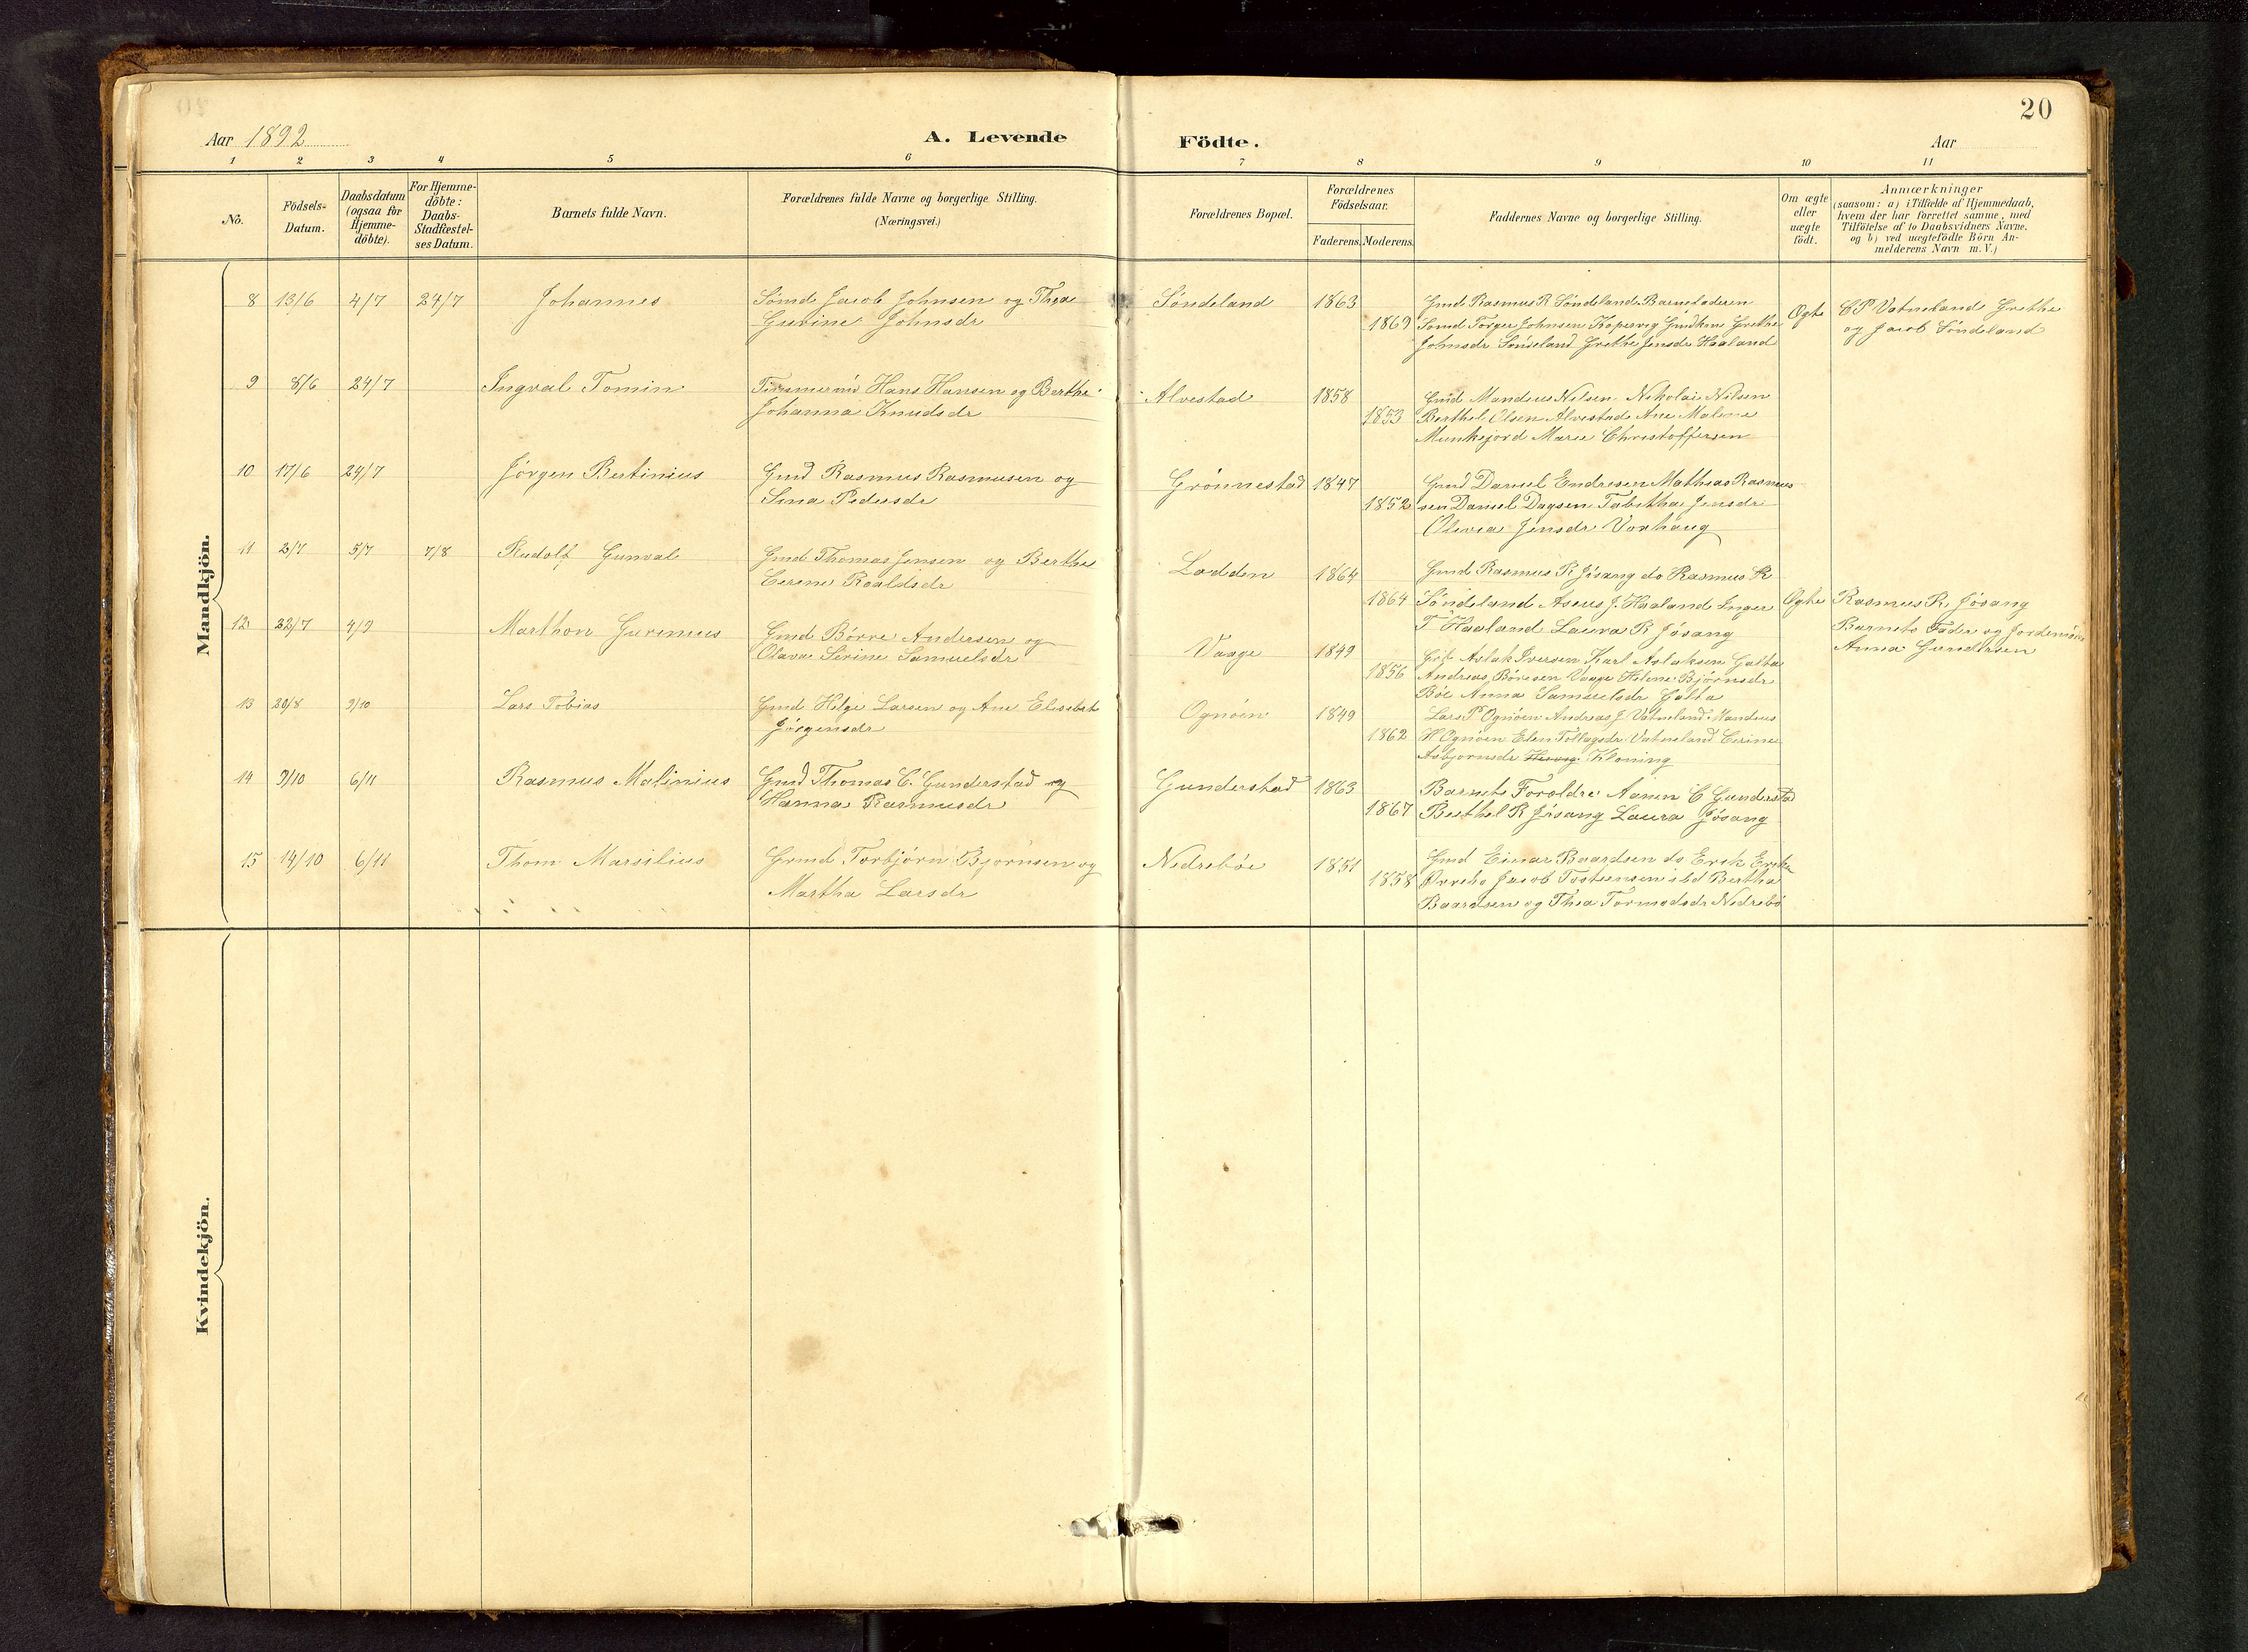 20
Aar 1892
A. Levende
Födte.
Aar
1 2 3 4 5 6 7 8 9 10 11
No.
Födsels-
Datum.
Daabsdatum
(ogsaa for
Hjemme-
döbte).
For Hjemme-
döbte:
Daabs-
Stadfæstel-
ses Datum.
Barnets fulde Navn.
Forældrenes fulde Navne og borgerlige Stilling.
(Næringsvei.)
Forældrenes Bopæl.
Forældrenes
Födselsaar.
Faderens. Moderens.
Faddernes Navne og borgerlige Stilling.
Om ægte
eller
uægte
födt.
Anmærkninger
(saasom: a) i Tilfælde af Hjemmedaab,
hvem der har forrettet samme, med
Tilföielse af to Daabsvidners Navne.
og b) ved uægtefödte Börn An-
melderens Navn m. V.)
Mandkjön.
8 13/6 4/7 24/7 Johannes
Sømd Jacob Johnsen og Thea
Gurine Johnsdr
Søndeland 1863
1869
Gmd Rasmus R Søndeland Barnefaderen
Sømd Torger Johnsen Kopervig Gmdkone Grethe
Johnsdr Søndeland Grethe Jensdr Haaland
Ægte
C P Vatneland Grethe
og Jacob Søndeland
9 8/6 24/7 Ingval Tomin
Hans Hansen og Berthe
Johanna Knudsdr
Alvestad 1858
1853
Gmd Mandius Nilsen Nikolai Nilsen
Berthel Olsen Alvestad Ane Malene
Munkejord Marie Christoffersen
10 17/6 24/7 Jørgen Bertinius
Gmd Rasmus Rasmusen og
Sina Pedersdr
Grønnestad 1847
1852
Gmd Daniel Endresen Mathias Rasmus
sen Daniel Dagsen Tabitha Jensdr
Olevia Jensdr Vorhaug
11 2/7 5/7 7/8 Rudolf Gunval
Gmd Thomas Jensen og Berthe
Cerene Roaldsdr
Lodden 1864
1864
Gmd Rasmus R Jøsang do Rasmus R
Søndeland Aseus J. Haaland Inger
T Haaland Laura R Jøsang
Ægte
Rasmus R. Jøsang
Barnets Fader og Jordemoder
Anna Gundersen
12 22/7 4/9 Marthon Gurinius
Gmd Børre Andersen og
Olava Serine Samuelsdr
Vaage 1849
1856
Aslak Iversen Karl Aslaksen Galta
Andreas Børresen Vaage Helene Bjørnsdr
Bøe Anna Samuelsdr Galta
13 20/8 9/10 Lars Tobias
Gmd Helge Larsen og Ane Elisebet
Jørgensdr
Ognøen 1849
1862
Lars P Ognøen Andreas J Vatneland Mandius
H Ognøen Elen Tollagsdr Vatneland Cerine
Asbjørnsdr Hervig Kloning
14 9/10 6/11 Rasmus Malinius
Gmd Thomas C. Gunderstad og
Hanna Rasmusdr
Gunderstad 1863
1867
Barnets Foroldre Aanen C Gunderstad
Berthel R Jøsang Laura Jøsang
15 14/10 6/11 Thom Marsilius
Grmd Torbjørn Bjørnsen og
Martha Larsdr
Nedrebøe 1851
1858
Gmd Einar Baardsen do Erik
Ørreho Jacob Tostensen ibd Bertha
Baardsen og Thea Tormodsdr Nedrebø
Kvindekjön.